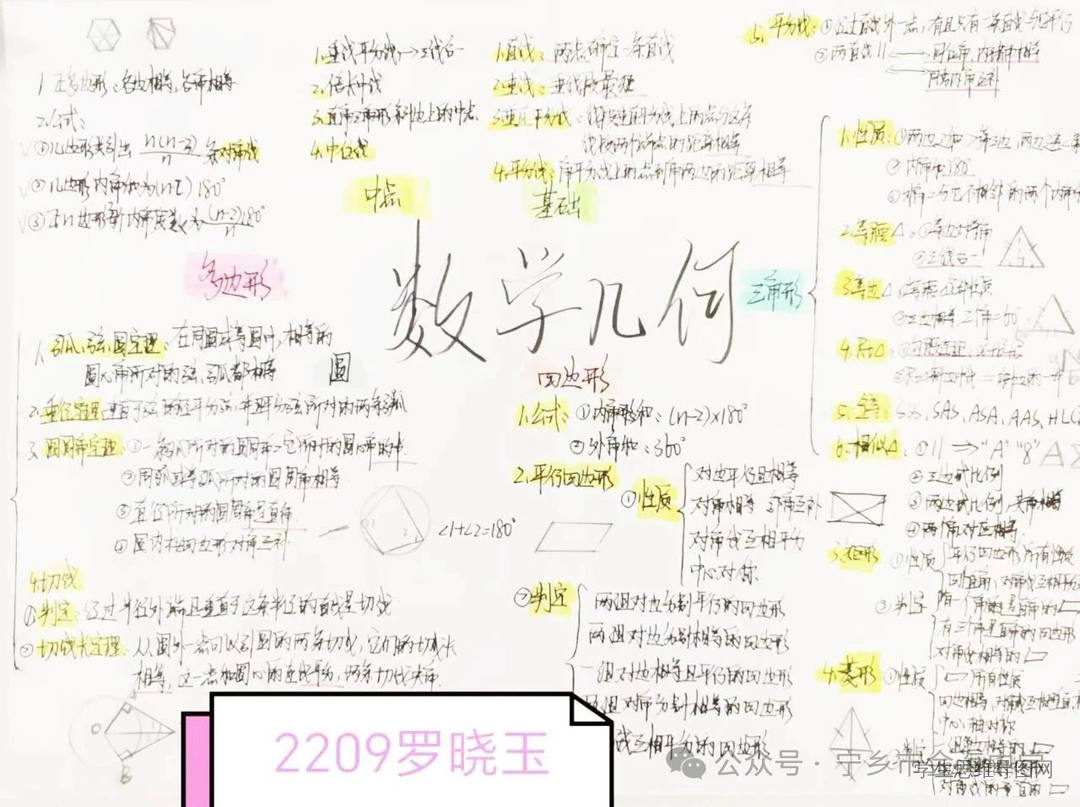 1.正多边形：各边相等，各角相等
2.公式：
①n边形共引出 n(n-3)/2 条对角线
②n边形内角和为(n-2)180°
③正n边形每个内角度数为(n-2)180°/n
多边形
1.垂线平分线→三线合一
2.倍长中线
3.直角三角形斜边上的中点
4.中位线
中点
1.直线：两点确定一条直线
2.垂线：垂线段最短
3.垂直平分线：线段垂直平分线上的点与这条
线段两个端点的距离相等
4.平分线：角平分线上的点到角两边的距离相等
基础
5.平行线：①过直线外一点，有且只有一条直线与它平行
②两直线∥
同位角，内错角相等
同旁内角互补
数学几何
三角形
1.性质：①两边之和>第三边，两边之
②内角和180°
2.等腰△：①等边对等角
②三线合一
3.等边△
②三边相等，三角=60°
4.Rt△
①勾股定理
5.全等：SSS，SAS，ASA，AAS，HL
6.相似△：①∥⇒"A""8"
②三边成比例
③两边成比例，夹角相等
④两角对应相等
圆
1.弧，弦，圆定理：在同圆或等圆中，相等的
圆心角所对的弦，弧都相等
2.垂径定理
3.圆周角定理：
②同弧或等弧所对的圆周角相等
③直径所对的圆周角是直角
④圆内接四边形对角互补
∠1+∠2=180°
4.切线
①判定：经过半径外端且垂直于这条半径的直线是切线
②切线长定理：从圆外一点可以引圆的两条切线，它们的切线长
相等，这一点和圆心的连线平分，两条切线夹角.
B
四边形
1.公式：①内角和：(n-2)×180°
②外角和：360°
2.平行四边形
①性质
对边平行且相等
对角相等 邻角互补
对角线互相平分
中心对称
②判定
两组对边分别平行的四边形
两组对边分别相等的四边形
一组对边相等且平行的四边形
两组对角分别相等的四边形
线互相平分的四边形
3.矩形
①性质
平行四边形所有性质
②判定
有一个角是直角的▱
有三个角是直角的四边形
对角线相等的▱
4.菱形
①性质
▱所有性质
中心轴对称
判定
2209罗晓玉
公众号·宁乡市
学生思维导图网